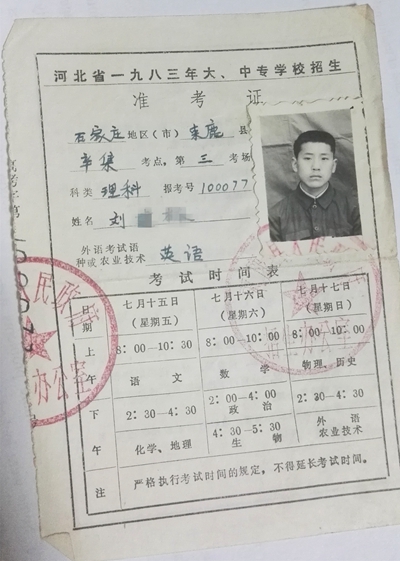 河北省一九八三年大、中专学校招生
准考证
石家庄地区(市)束鹿县
辛集考点，第三考场
科类 理科 报考号 100077
姓名 刘
外语考试语
种或农业技术 英语
考试时间表
日期 七月十五日(星期五) 七月十六日(星期六) 七月十七日(星期日)
上午 8:00—10:30 8:00—10:00 8:00—10:00
语文 数学 物理、历史
下午 2:30—4:30 2:00—4:00 2:30—4:30
政治
化学、地理 4:30—5:30 外语
生物 农业技术
注 严格执行考试时间的规定，不得延长考试时间。
民政
办公室